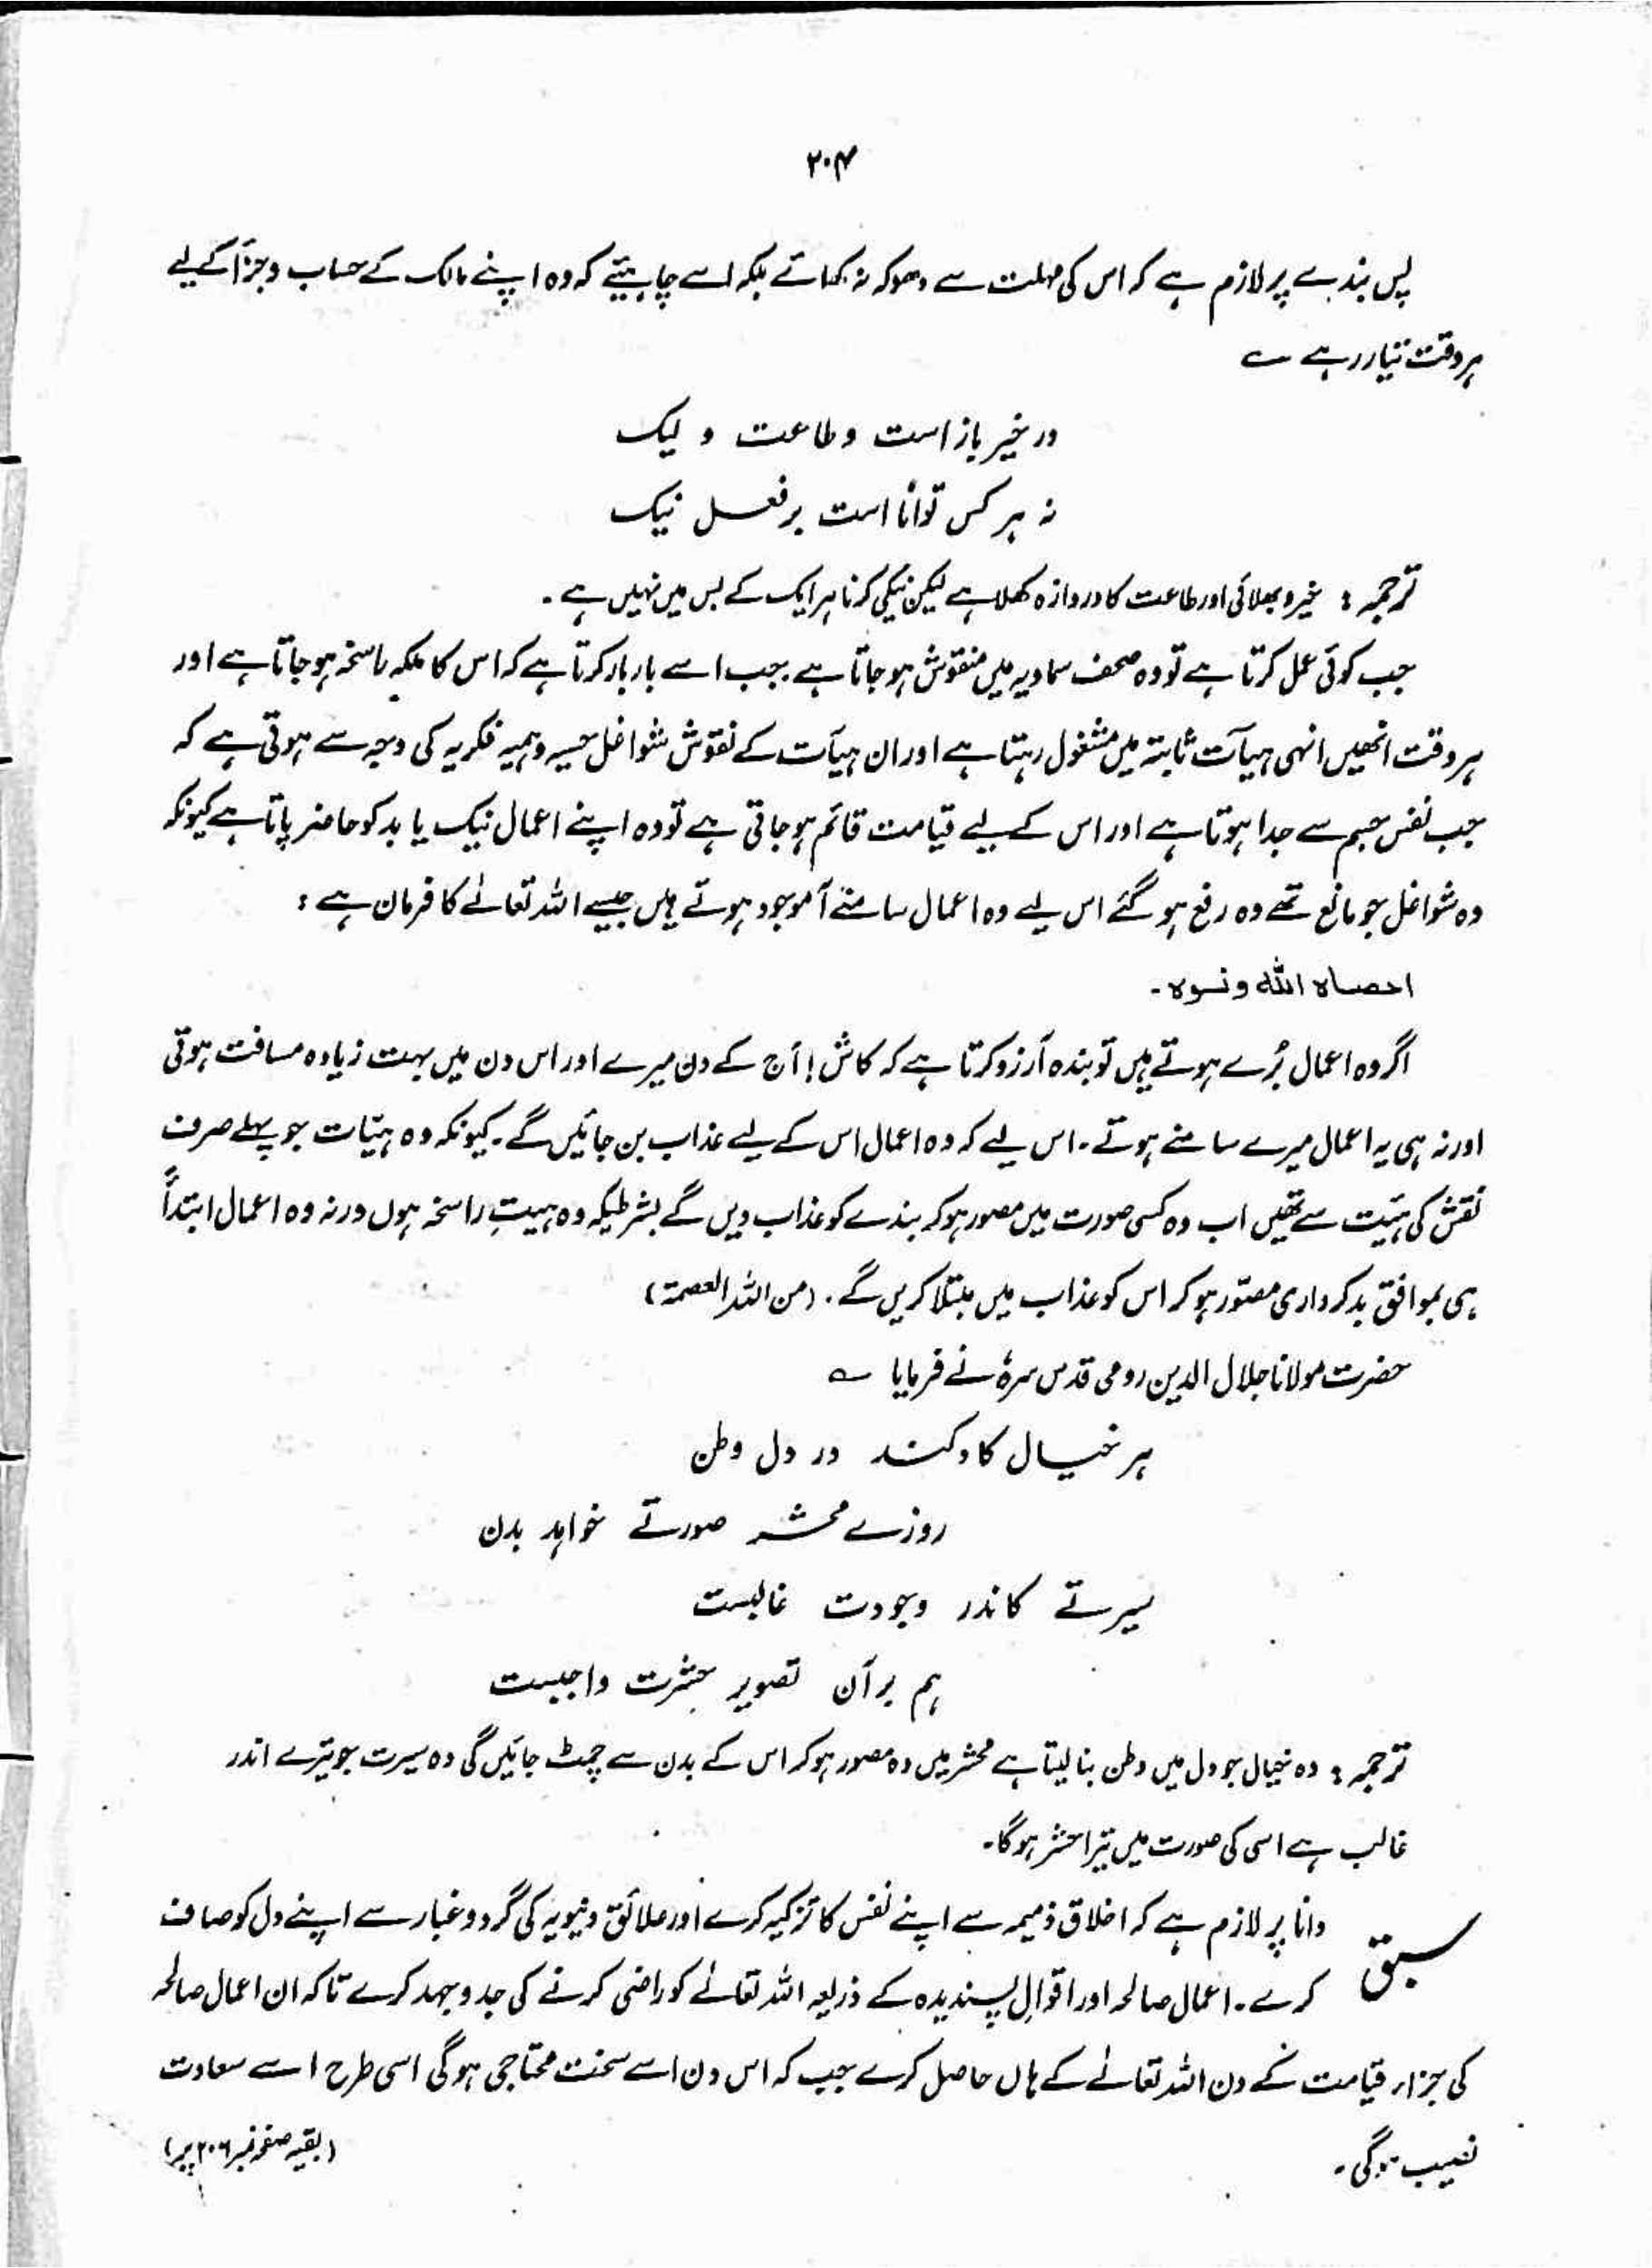 ۲۰۴
پس بندے پر لازم ہے کہ اس کی مہلت سے دھوکہ نہ کھائے بلکہ اسے چاہیئے کہ وہ اپنے مالک کے حساب وجزآ کے لیے
ہر وقت تیار رہے ؎
در خیر باز است وطاعت و لیک
نہ ہر کس توانا است بر فعل نیک
ترجمہ : خیر و بھلائی اور طاعت کا دروازہ کھلا ہے لیکن نیکی کرنا ہر ایک کے بس میں نہیں ہے ۔
جب کوئی عمل کرتا ہے تو وہ صحف سماویہ میں منقوش ہو جاتا ہے ۔ جب اسے بار بار کرتا ہے کہ اس کا ملکہ راسخہ ہو جاتا ہے اور
ہر وقت انھیں انہی ہیآت ثابتہ میں مشغول رہتا ہے اور ان ہیآت کے نقوش شواغل حسیہ وہمیہ فکریہ کی وجہ سے ہوتی ہے کہ
جب نفس جسم سے جدا ہوتا ہے اور اس کے لیے قیامت قائم ہو جاتی ہے تو وہ اپنے اعمال نیک یا بد کو حاضر پاتا ہے کیونکہ
وہ شواغل جو مانع تھے وہ رفع ہو گئے اس لیے وہ اعمال سامنے آ موجود ہوتے ہیں جیسے اللہ تعالےٰ کا فرمان ہے :
احصاہ اللہ ونسوہ ۔
اگر وہ اعمال بُرے ہوتے ہیں تو بندہ آرزو کرتا ہے کہ کاش ! آج کے دن میرے اور اس دن میں بہت زیادہ مسافت ہوتی
اور نہ ہی یہ اعمال میرے سامنے ہوتے ۔ اس لیے کہ وہ اعمال اس کے لیے عذاب بن جائیں گے ۔ کیونکہ وہ ہیّات جو پہلے صرف
نقش کی ہیّت سے تھیں اب وہ کسی صورت میں مصور ہو کر بندے کو عذاب دیں گے بشرطیکہ وہ ہیبتِ راسخہ ہوں ورنہ وہ اعمال ابتدأً
ہی بموافق بدکرداری مصوّر ہو کر اس کو عذاب میں مبتلا کریں گے ۔ (من اللہ العصمۃ)
حضرت مولانا جلال الدین رومی قدس سرہٗ نے فرمایا ؎
ہر خیال کا و کند در دل وطن
روزے محشر صورتے خواہد بدن
سیرتے کاندر وجودت غالبست
ہم بر آن تصویر حشرت واجبست
ترجمہ : وہ خیال جو دل میں وطن بنا لیتا ہے محشر میں وہ مصور ہو کر اس کے بدن سے چمٹ جائیں گی وہ سیرت جو تیرے اندر
غالب ہے اسی کی صورت میں تیرا حشر ہوگا ۔
سبق دانا پر لازم ہے کہ اخلاق ذمیمہ سے اپنے نفس کا تزکیہ کرے اور علائق دنیویہ کی گرد وغبار سے اپنے دل کو صاف
کرے ۔ اعمال صالحہ اور اقوالِ پسندیدہ کے ذریعہ اللہ تعالےٰ کو راضی کرنے کی جدوجہد کرے تاکہ ان اعمال صالحہ
کی جزاء قیامت کے دن اللہ تعالےٰ کے ہاں حاصل کرے جب کہ اس دن اسے سخت محتاجی ہوگی اسی طرح اسے سعادت
نصیب ہوگی ۔
(بقیہ صفحہ نمبر ۲۰۶ پر)